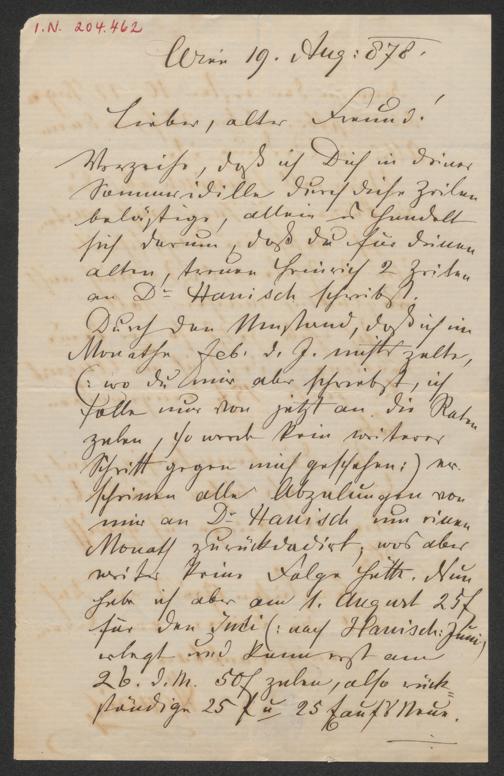 I.N. 204.462
Wien 19. Aug: 878.
Lieber, alter Freund!
Verzeihe, daß ich Dich in deiner
Sommeridille durch diese Zeilen
belästige, allein es handelt
sich darum, daß du für deinen
alten, treuen Heinrich 2 Zeilen
an Dr Hanisch schreibst.
Durch den Umstand, daß ich im
Monathe Feb. d. J. nichts zalte,
(: wo du mir aber schriebst, ich
solle nur von jetzt an die Raten
zalen, so werde kein weiterer
Schritt gegen mich geschehen:) er-
scheinen alle Abzalungen von
mir an Dr Hanisch um einen
Monath zurückdadirt, was aber
weiter keine Folge hätte. Nun
habe ich aber am 1. August 25 f
für den Juli (: nach Hanisch: Juni,
erlegt und kann erst am
26. d. M. 50 f zalen, also rück=
ständige 25 f u 25 f aufs Neue.